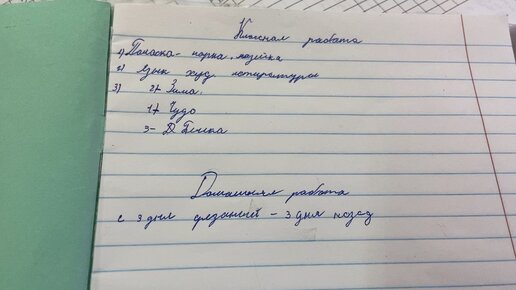 Классная работа
1) Полоска - парка, лазейка
2) Язык худ. литературы
3) 2+ Зима.
1+ Чудо
3- Д Пенка
Домашняя работа
с 3 дня фезаний - 3 дня назад